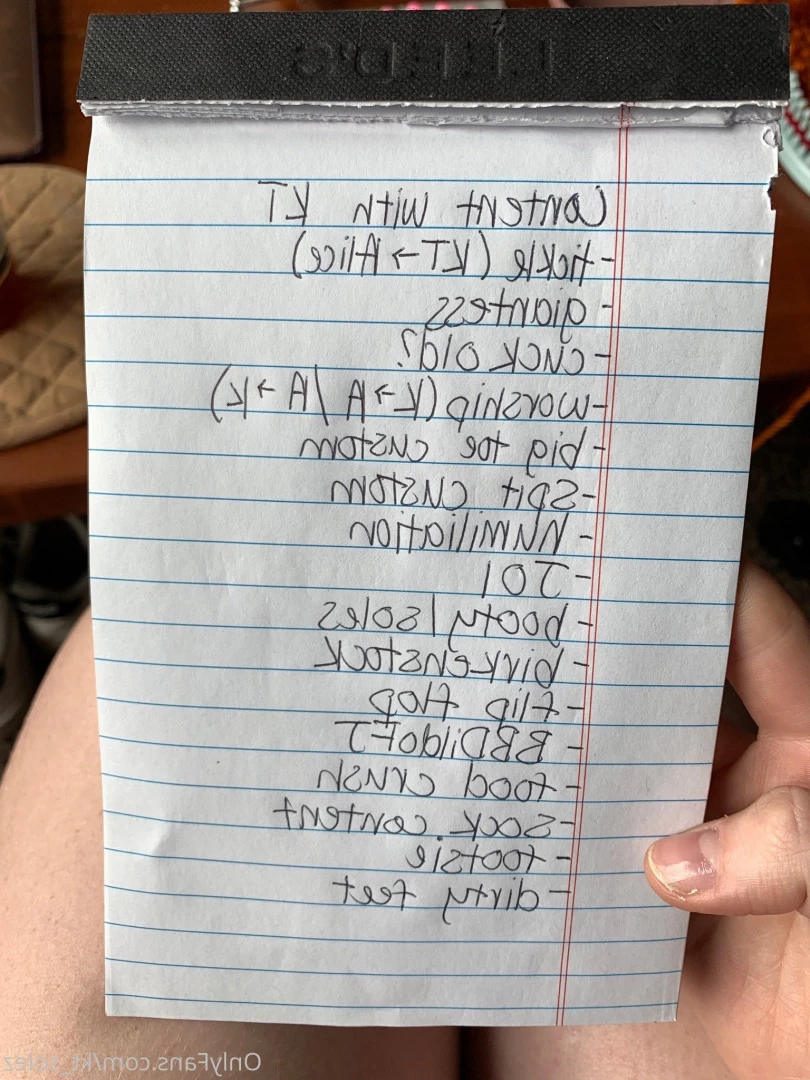 LEEDS
Content with KT
- tickle (KT → Alice)
- giantess
- cuck old?
- worship (K → A / A → K)
- big toe custom
- spit custom
- humiliation
- JOI
- booty / soles
- birkenstock
- flip flop
- BBDildoFJ
- food crush
- sock content
- footsie
- dirty feet